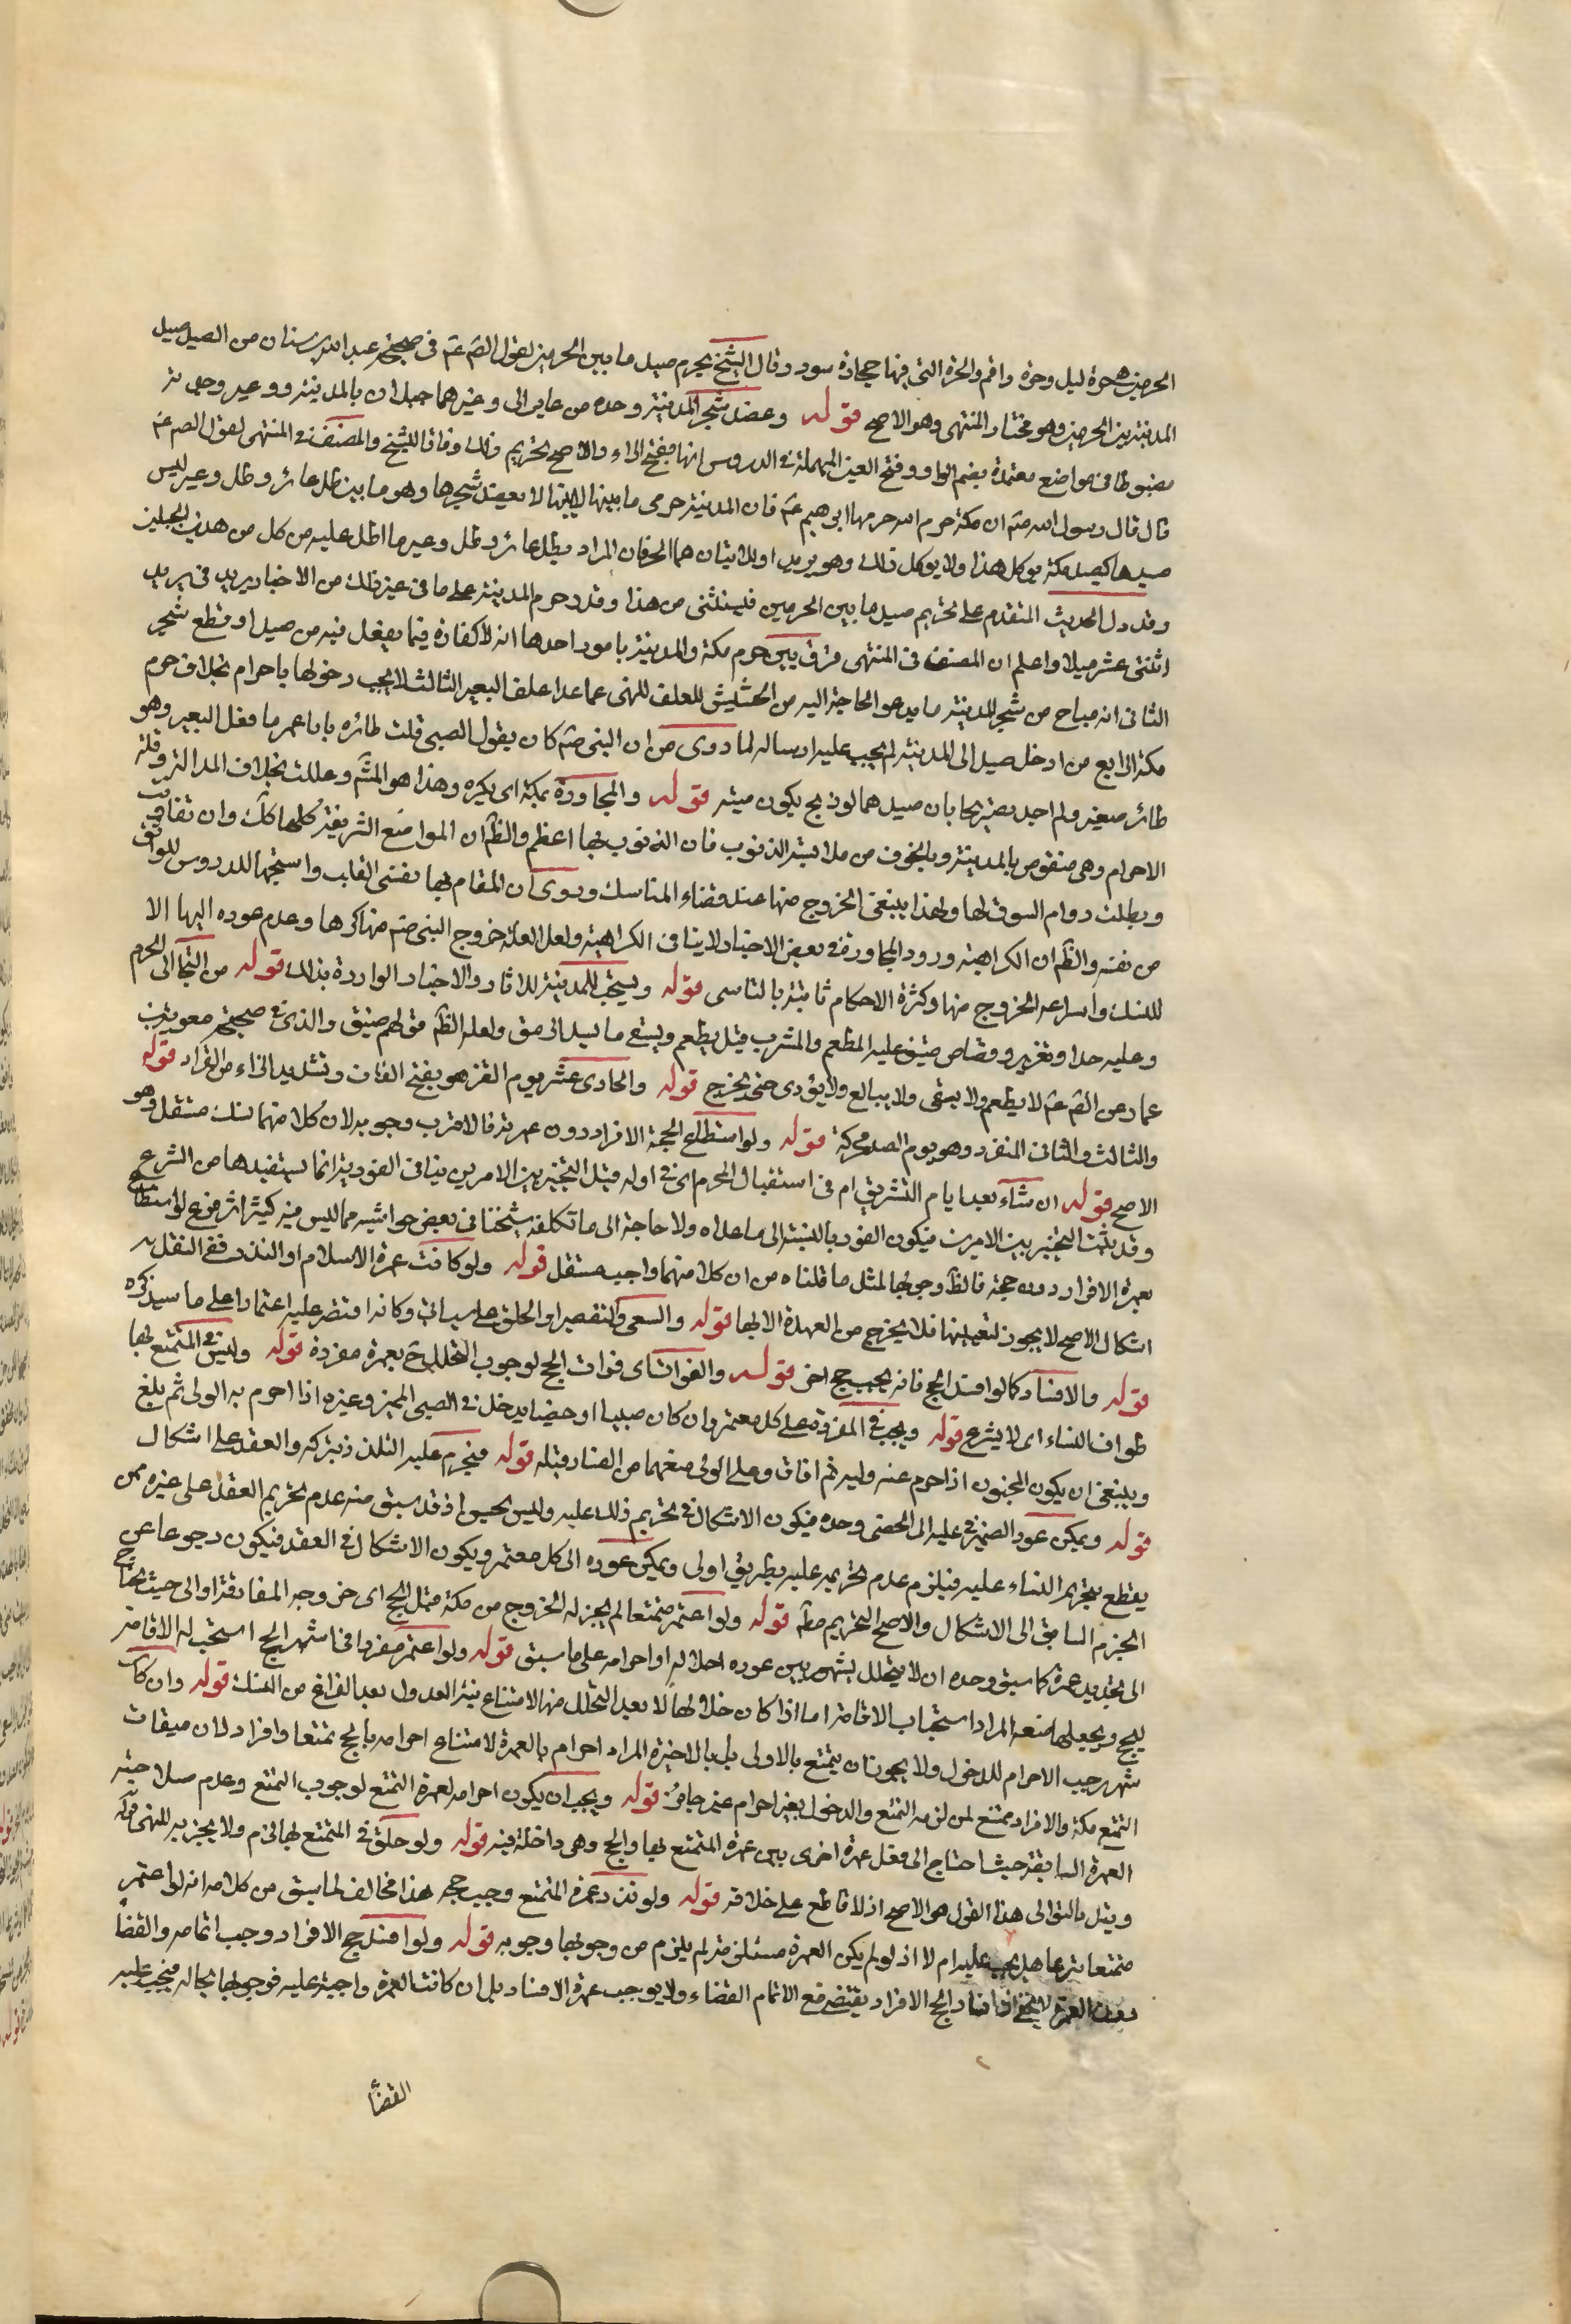 الحرمين هي حرة ليل وحرة واقم والحرة التي فيها حجارة سود وقال الشيخ يحرم صيد ما بين الحرمين لقول الصم عم في صحيحة عبد الله بن سنان من الصيد صيد
المدينة بين الحرمين وهو مختار المنتهى وهو الاصح قوله وعضد شجر المدينة وحده من عاير الى وعير هما جبلان بالمدينة ووعير وجدته
مضبوطا في مواضع معتمدة بضم الواو وفتح العين المهملة في الدروس انها بفتح الواو والاصح تحريم ذلك وفاقا للشيخ والمصنف في المنتهى لقول الصم عم
قال قال رسول الله صم ان مكة حرم الله حرمها ابرهيم عم فان المدينة حرمى ما بين لابتيها لا يعضد شجرها وهو ما بين ظل عائر وظل وعير ليس
صيدها كصيد مكة يوكل هذا ولا يوكل ذلك وهو بريد اولابتيان هما الحرتان المراد بظل عائر وظل وعير ما اظل عليه من كل من هذين الجبلين
وقد دل الحديث المتقدم على تحريم صيد ما بين الحرمين فيستثنى من هذا وقدر حرم المدينة على ما في غير ذلك من الاخبار بريد في بريد
اثنتى عشر ميلا واعلم ان المصنف في المنتهى فرق بين حرم مكة والمدينة بامور احدها انه لا كفارة فيما يفعل فيه من صيد او قطع شجر
الثانى انه مباح من شجر المدينة ما يدعو الحاجة اليه من الحشيش للعلف للنهى عما عدا علف البعير الثالث لا يجب دخولها باحرام بخلاف حرم
مكة الرابع من ادخل صيدا الى المدينة لم يجب عليه ارساله لما روى من ان النبى صم كان يقول لصبى قلت طائره يا با عمر ما فعل البعير وهو
طائر صغير ولم اجد تصريحا بان صيدهما لو ذبح يكون ميتة قوله والمجاورة بمكة اى يكره وهذا هو المشم وعللت بخلاف المدالة وقلة
الاحرام وهى منقوص بالمدينة وبالخوف من ملابسة الذنوب فان الذنوب بها اعظم والظم ان المواضع الشريفة كلها كك وان تفاوت
وبطلب دوام السوق لها ولهذا ينبغى الخروج منها عند قضاء المناسك وروى ان المقام بها يقسى القلب واستحبها الدروس للواثق
من نفسه والظم ان الكراهية ورود المجاورة في بعض الاخبار لا ينافى الكراهية ولعل العلة خروج النبى صم منها كرها وعدم عوده اليها الا
للنسك واسراعه الخروج منها وكثرة الاحكام ثابتة بالتاسى قوله ويستحب المدينة للاثار والاخبار الواردة بذلك قوله من التجا الى الحرم
وعليه حدا وتعزير وقصاص ضيق عليه المطعم والمشرب قيل يطعم ويسقى ما يسد الرمق ولعله الظم فهم ضيق والذى في صحيحة معوية بن
عمار من الصم عم لا يطعم ولا يسقى ولا يبايع ولا يؤدى حتى يخرج قوله والحادى عشر يوم القر هو بفتح القاف وتشديد الراء من القرار قوله
والثالث والثانى المنفرد وهو يوم الصدر محركة قوله ولو استطاع لحجة الافراد دون عمرته فالاقرب وجوبه لان كلا منهما نسك مستقل وهو
الاصح قوله ان شاء بعد ايام التشريق ام في استقبال المحرم اى في اوله قيل التخيير بين الامرين ينافى الفورية انما يستفيدها من الشرع
وقد يثبت التخيير بين الامرين فيكون الفور بالنسبة الى ما عداه ولا حاجة الى ما تكلفه شيخنا في بعض حواشيه مما ليس فيه كثير اثر فرع لو استطاع
بعمرة الافراد دون حجة فالظم وجوبها لمثل ما قلناه من ان كلا منهما واجب مستقل قوله ولو كانت عمرة الاسلام او النذر ففي النقل نظر
اشكال الاصح لا يجوز لتعينها فلا يخرج من العهدة الا بها قوله والسعى والتقصير او الحلق على ما ياتى وكانه اقتصر عليه اعتمادا على ما سيذكره
قوله والافساد كما لو افسد الحج فانه يجب حج اخر قوله والفوات اى فوات الحج لوجوب التحلل ح بعمرة مفردة قوله وليس في المتمتع بها
طواف النساء اى لا يشرع قوله ويجب في المفردة على كل معتمر وان كان صبيا او خصيا يدخل في الصبى المميز وغيره اذا احرم به الولى ثم بلغ
وينبغى ان يكون المجنون اذا احرم عنه وليه ثم افاق وعلى الولى منعهما من النساء قبله قوله فيحرم عليه التلذذ بتركه والعقد على اشكال
قوله ويمكن عود الضمير في عليه الى الخصى وحده فيكون الاشكال في تحريم ذلك عليه وليس بحسن اذ قد سبق منه عدم تحريم العقد على غيره ممن
يقطع بتحريم النساء عليه فيلزم عدم تحريمه عليه بطريق اولى ويمكن عوده الى كل معتمر ويكون الاشكال في العقد فيكون رجوعا عن
الجزم السابق الى الاشكال والاصح التحريم مطم قوله ولو اعتمر متمتعا لم يجز له الخروج من مكة قبل الحج اى خروجه المفارقة او الى حيث يحتاج
الى تجديد عمرة كما سبق وحده ان لا يتخلل شهر بين عوده احلاله او احرامه على ما سبق قوله ولو اعتمر مفردا في اشهر الحج استحب له الاقامة
ليحج ويجعلها متعة المراد استحباب الاقامة اما اذا كان خلافها لا بعد التحلل منها الامتناع نية العدول بعد الفراغ من النسك قوله وان كان
شهر رجب الاحرام للدخول ولا يجوز ان يتمتع بالاولى بل بالاخيرة المراد احرام بالعمرة لامتناع احرامه بالحج تمتعا وافراد لان ميقات
التمتع مكة والافراد ممتنع لمن لزمه التمتع والدخول بغير احرام غير جائز قوله ويجب ان يكون احرامه لعمرة التمتع لوجوب التمتع وعدم صلاحية
العمرة السابقة حيث احتاج الى فعل عمرة اخرى بين عمرة المتمتع بها والحج وهى داخلة فيه قوله ولو حلق في المتمتع بها لزم ولا يجزيه للنهى قوله
وقيل بالتوالى هذا القول هو الاصح اذ لا قاطع على خلافه قوله ولو نذر عمرة المتمتع وجب حجه هذا مخالف لما سبق من كلامه انه لو اعتمر
متمتعا تبرعا هل يجب عليه ام لا اذ لو لم يكن العمرة مستلزمة لم يلزم من وجوبها وجوبه قوله ولو افسد حج الافراد وجب اتمامه والقضاء
دون العمرة لا يخفى ان افساد الحج الافراد يقتضى مع الاتمام القضاء ولا يوجب عمرة الافساد بل ان كانت العمرة واجبة عليه فوجوبها بحاله فيجب عليه
القضا